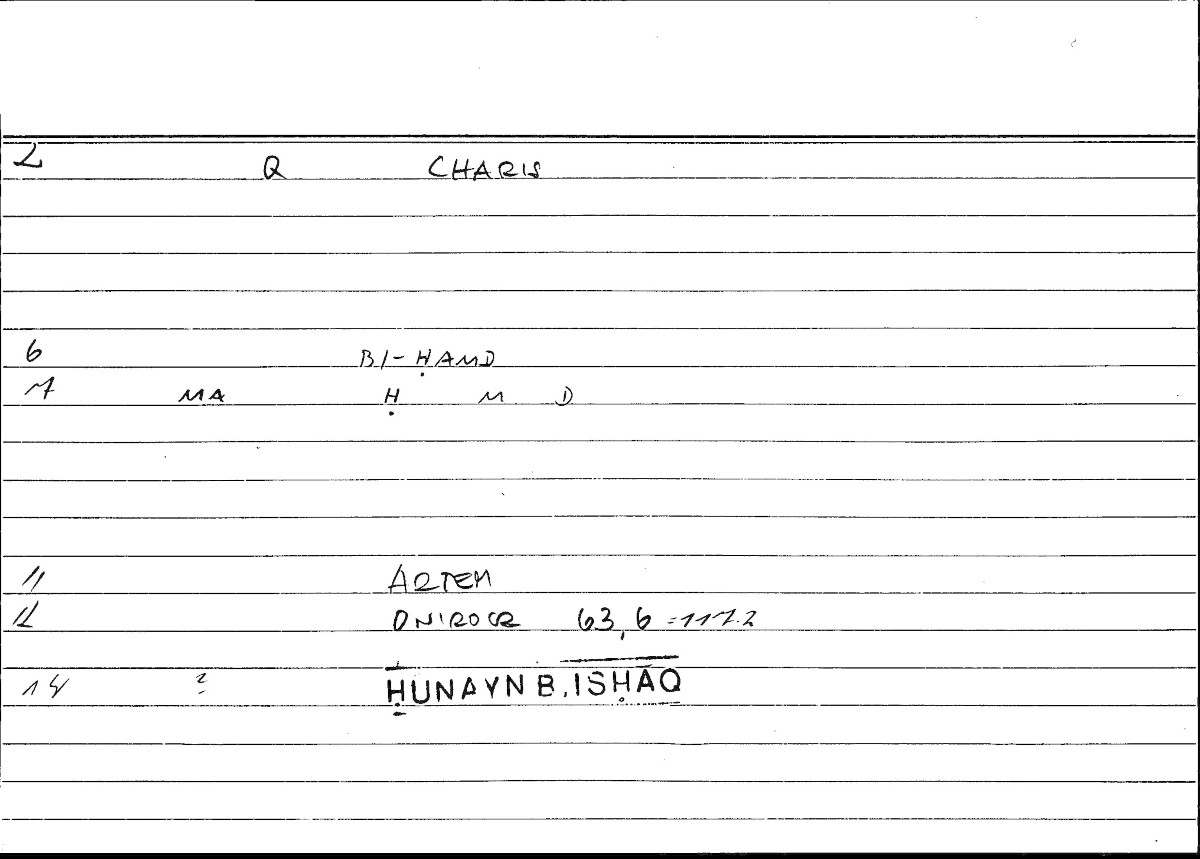 2 Q CHARIS
6 BI-ḤAMD
7 MA Ḥ M D
11 ARTEM
12 ONIROCR 63,6 =117.2
14 ? ḤUNAYN B. ISḤĀQ